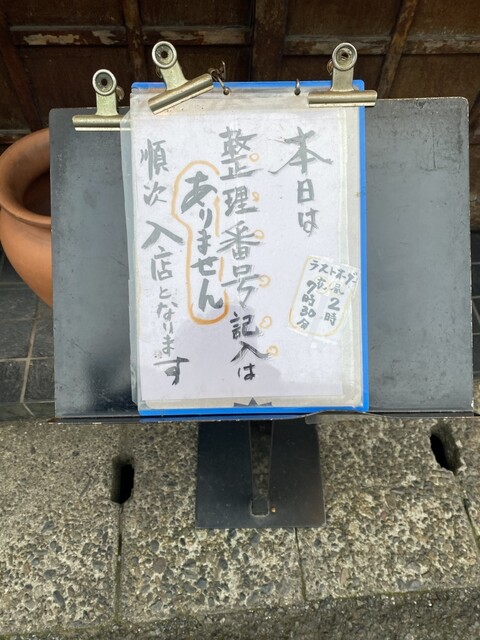 本日は
整理番号記入は
ありません
順次 入店となります
ラストオーダー
2時
7時30分